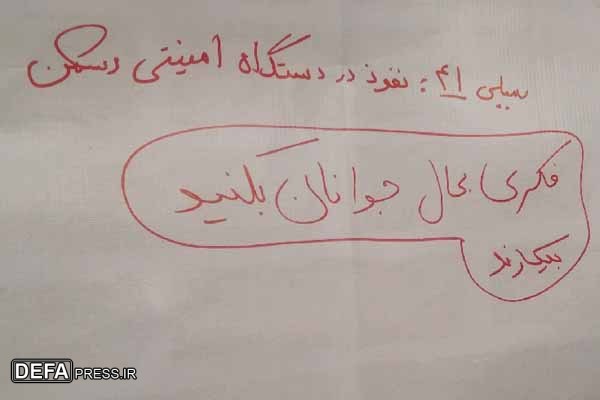 سیلی ۴۱: نفوذ در دستگاه امینتی دشمن
فکری بحال جوانان بکنید
بیکارند
DEFAPRESS.IR